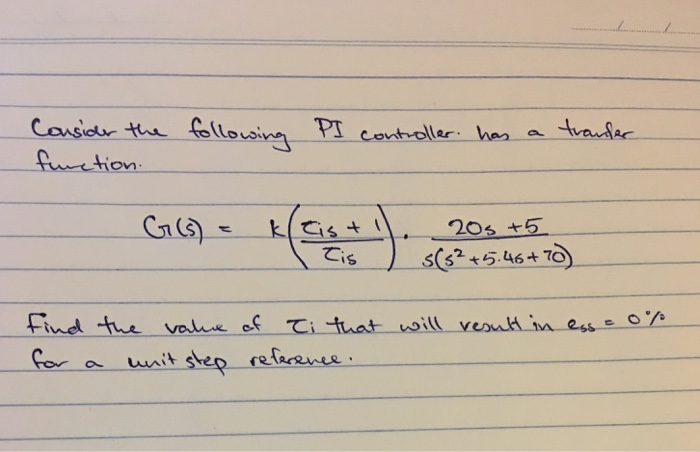 Consider the following PI controller. has a transfer
function.
G(s) = k(τis + 1 / τis) . 20s + 5 / s(s² + 5.4s + 70)
Find the value of τi that will result in ess = 0%
for a unit step reference.